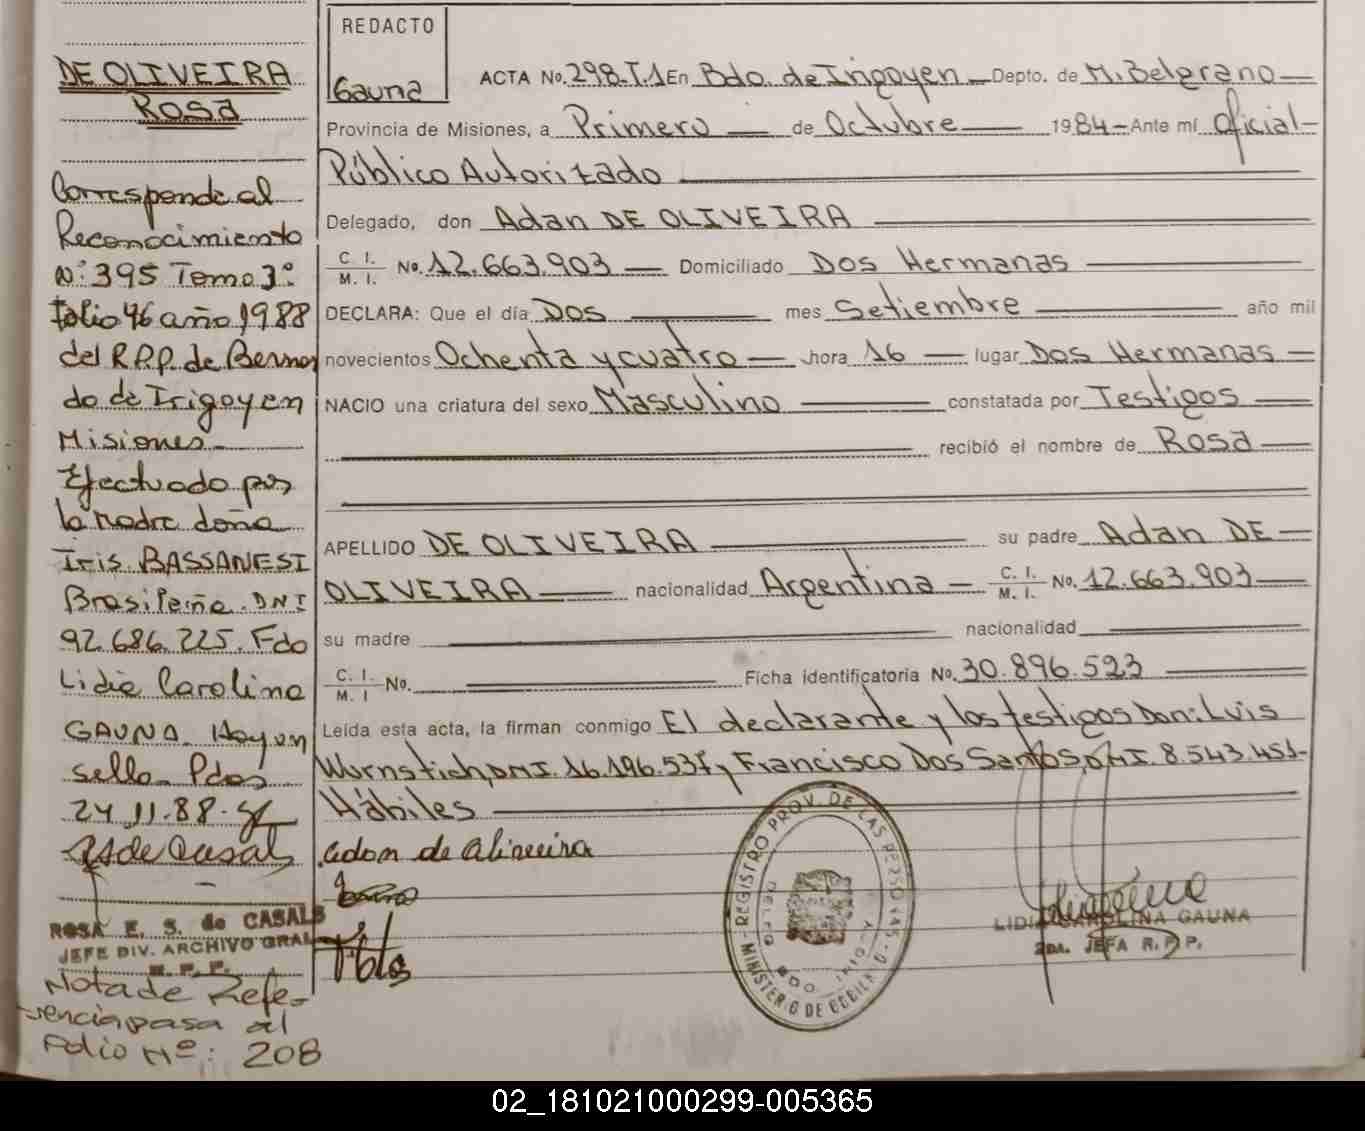 DE OLIVEIRA
ROSA
Corresponde al
Reconocimiento
Nº 395 Tomo 3º
folio 46 año 1988
del R.P.P. de Bernar
do de Irigoyen
Misiones
Efectuado por
la Madre doña
Iris BASSANESI
Brasileña. DNI
92.686.225. Fdo
Lidia Carolina
GAUNA. Hay un
sello. Pdas
24.11.88.
RSdeCasals
ROSA E. S. de CASALS
JEFE DIV. ARCHIVO GRAL
R. P. P.
Nota de Refe-
rencia pasa al
Folio Nº: 208
REDACTO
Gauna
ACTA No. 298-T.1 En Bdo. de Irigoyen Depto. de M. Belgrano
Provincia de Misiones, a Primero de Octubre 1984 Ante mí Oficial
Público Autorizado
Delegado, don Adan DE OLIVEIRA
C. I. / M. I. No. 12.663.903 Domiciliado Dos Hermanas
DECLARA: Que el día Dos mes Setiembre año mil
novecientos Ochenta y cuatro hora 16 lugar Dos Hermanas
NACIO una criatura del sexo Masculino constatada por Testigos
recibió el nombre de Rosa
APELLIDO DE OLIVEIRA su padre Adan DE
OLIVEIRA nacionalidad Argentina C. I. / M. I. No. 12.663.903
su madre nacionalidad
C. I. / M. I No. Ficha identificatoria No. 30.896.523
Leída esta acta, la firman conmigo El declarante y los testigos Don: Luis
Wurnstich, DNI. 16.196.537 y Francisco Dos Santos, DNI. 8.543.451-
Hábiles
adan de oliveira
REGISTRO PROV. DE LAS PERSONAS
MINISTERIO DE GOBIERNO
LIDIA CAROLINA GAUNA
2DA. JEFA R. P. P.
02_181021000299-005365